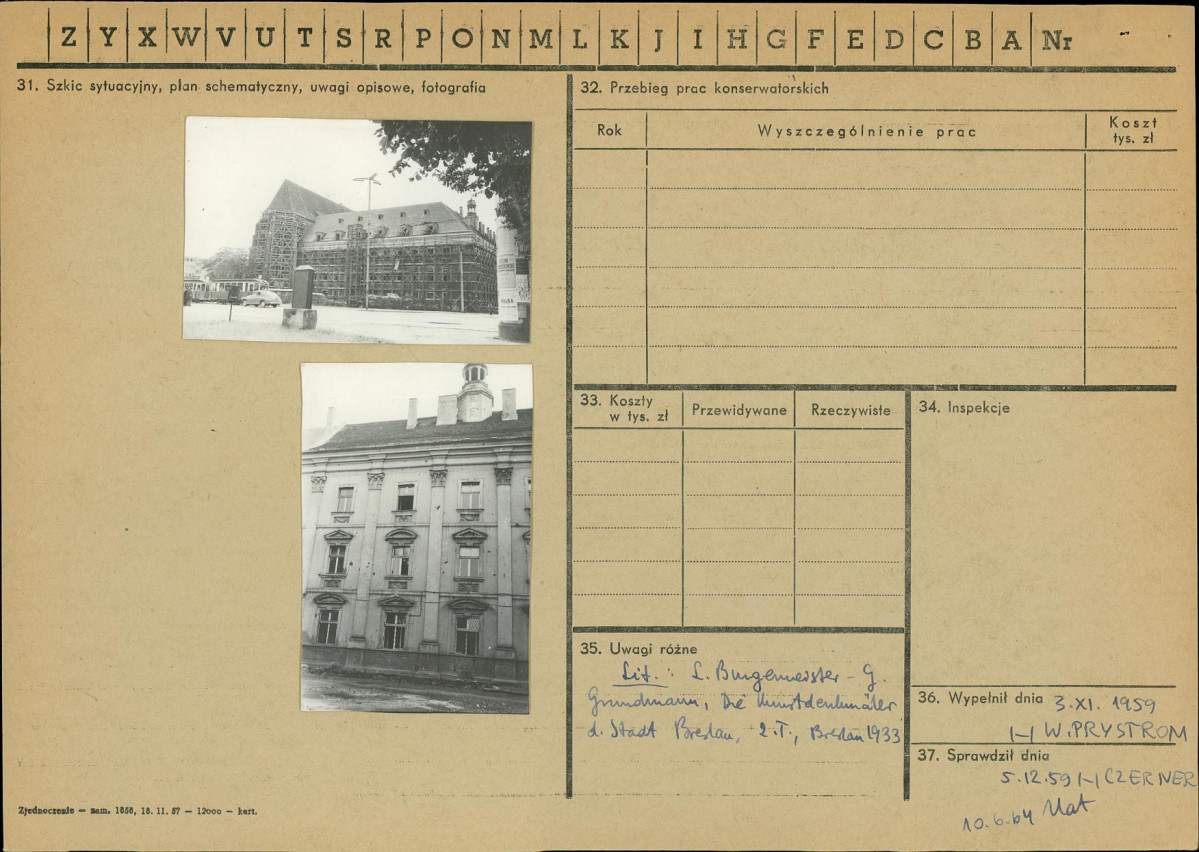 Z Y X W V U T S R P O N M L K J I H G F E D C B A Nr
31. Szkic sytuacyjny, plan schematyczny, uwagi opisowe, fotografia
32. Przebieg prac konserwatorskich
Rok
Wyszczególnienie prac
Koszt
tys. zł
33. Koszty
w tys. zł
Przewidywane
Rzeczywiste
34. Inspekcje
35. Uwagi różne
Lit.: L. Burgemeister - G.
Grundmann, Die Kunstdenkmäler
d. Stadt Breslau, 2.T., Breslau 1933
36. Wypełnił dnia 3.XI. 1959
/-/ W.PRYSTROM
37. Sprawdził dnia
5.12.59 /-/ CZERNER
10.6.64
Zjednoczenie — zam. 1858, 18. 11. 57 — 12000 — kart.